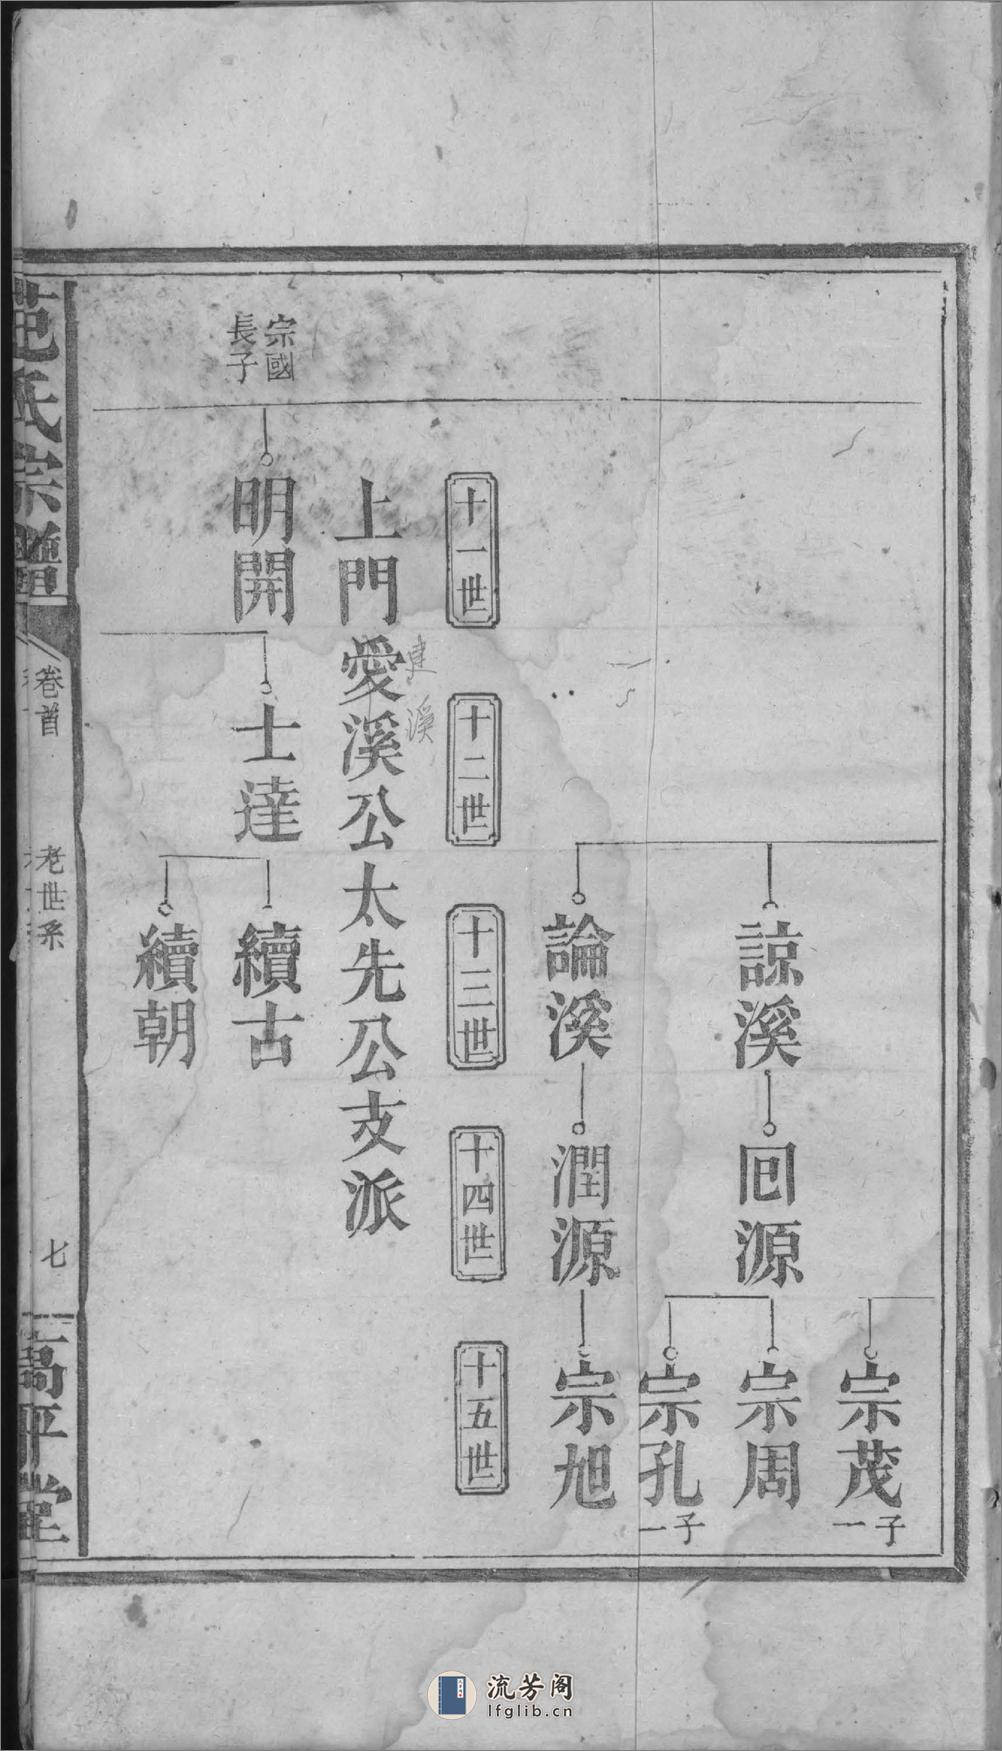 宗茂
子一
諒溪
回源
宗周
宗孔
子一
論溪
潤源
宗旭
十一世
十二世
十三世
十四世
十五世
建溪
上門愛溪公太先公支派
宗國
長子
明開
士達
續古
續朝
范氏宗譜
卷首
老世系
七
高平堂
流芳阁
lfglib.cn